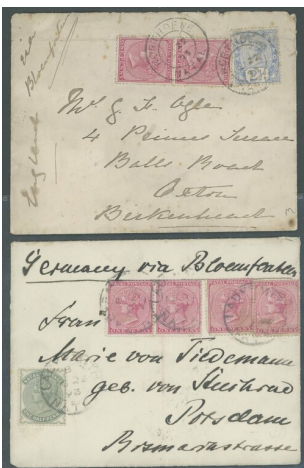 via
Bloemfontein
England
Mr G. F. Ogle
4 Princes Terrace
Balls Road
Oxton
Birkenhead
Germany via Bloemfontein
Frau
Marie von Tiedemann
geb. von
Potsdam
Bismarckstrasse